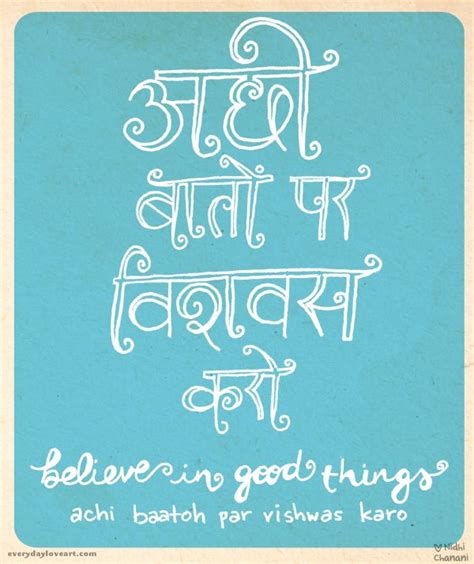 अछी
बातों पर
विशवस
करो
believe in good things
achi baatoh par vishwas karo
everydayloveart.com
Nidhi
Chanani